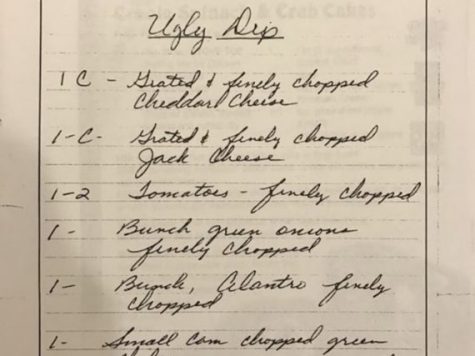 Ugly Dip
1 C - Grated & finely chopped
Cheddar Cheese
1-C- Grated & finely chopped
Jack Cheese
1-2 Tomatoes - finely chopped
1- Bunch green onions
finely chopped
1- Bunch, Cilantro finely
chopped
1- Small can chopped green